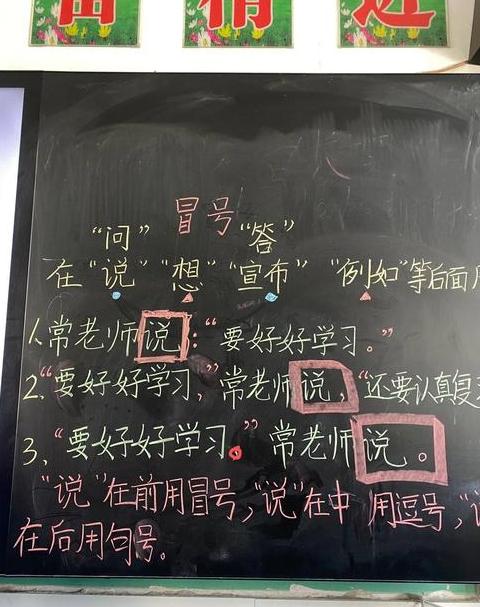 冒号
“问” “答”
在“说”“想”“宣布”“例如”等后面用
1、常老师说:“要好好学习。”
2、“要好好学习,”常老师说,“还要认真复
3、“要好好学习。”常老师说。
“说”在前用冒号,“说”在中用逗号,“
在后用句号。